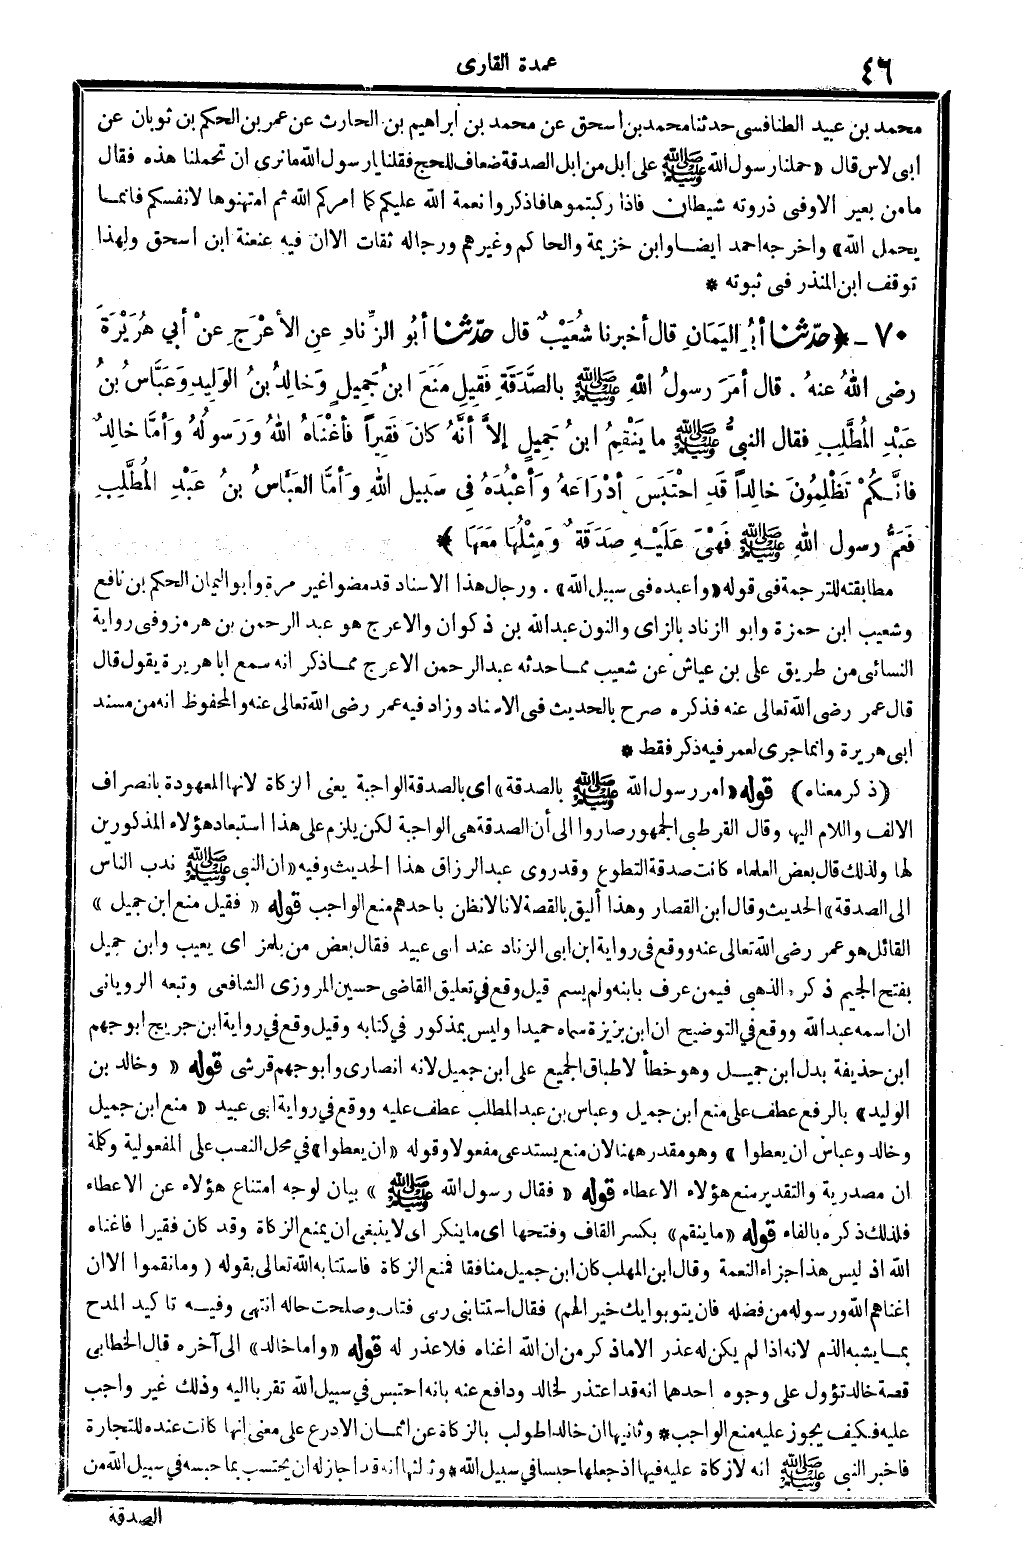 ٤٦
عمدة القارى
محمد بن عبيد الطنافسى حدثنا محمد بن اسحق عن محمد بن ابراهيم بن الحارث عن عمر بن الحكم بن ثوبان عن
ابى لاس قال « حملنا رسول الله ﷺ على ابل من ابل الصدقة ضعاف للحج فقلنا يا رسول الله ما نرى ان تحملنا هذه فقال
مامن بعير الا وفى ذروته شيطان فاذا ركبتموها فاذكروا نعمة الله عليكم كما امركم الله ثم امتهنوها لانفسكم فانمـا
يحمل الله » واخرجه احمد ايضـا وابن خزيمة والحاكم وغيرهم ورجاله ثقات الا ان فيه عنعنة ابن اسحق ولهذا
توقف ابن المنذر فى ثبوته *
٧٠ - ﴿ حدّثنا أبُو اليَمَانِ قال أخبرنا شُعَيْبٌ قال حدّثنا أبُو الزِّنادِ عنِ الأَعْرَجِ عنْ أبي هُرَيْرَةَ
رضى اللهُ عنهُ . قال أمَرَ رسولُ اللهِ ﷺ بالصَّدَقَةِ فَقِيلَ مَنَعَ ابنُ جَمِيلٍ وَخالِدُ بنُ الوَلِيدِ وَعَبَّاسُ بنُ
عَبْدِ المُطَّلِبِ فقال النبيُّ ﷺ ما يَنْقِمُ ابنُ جَمِيلٍ إلاَّ أنَّهُ كانَ فَقِيراً فأغْنَاهُ اللهُ وَرَسولُهُ وَأمَّا خالِدٌ
فانَّـكُمْ تَظْلِمُونَ خالِداً قَدِ احْتَبَسَ أدْرَاعَهُ وَأعْبُدَهُ فِي سَبِيلِ اللهِ وَأمَّا العَبَّاسُ بنُ عَبْدِ المُطَّلِبِ
فَعَمُّ رسولِ اللهِ ﷺ فَهْىَ عَلَيْـهِ صَدَقَةٌ وَمِثْلُهَا مَعَهَا ﴾ *
مطابقته للترجمة فى قوله « واعبده فى سبيل الله » . ورجال هذا الاسناد قد مضوا غير مرة وابو اليمان الحكم بن نافع
وشعيب ابن حمزة وابو الزناد بالزاى والنون عبد الله بن ذكوان والاعرج هو عبد الرحمن بن هرمز وفى رواية
النسائى من طريق على بن عياش عن شعيب ممـا حدثه عبد الرحمن الاعرج ممـا ذكر انه سمع ابا هريرة يقول قال
قال عمر رضى الله تعالى عنه فذكره صرح بالحديث فى الاسناد وزاد فيه عمر رضى الله تعالى عنه والمحفوظ انه من مسند
ابى هريرة وانما جرى لعمر فيه ذكر فقط *
( ذكر معناه ) قوله « امر رسول الله ﷺ بالصدقة » اى بالصدقة الواجبة يعنى الزكاة لانها المعهودة بانصراف
الالف واللام اليها وقال القرطبى الجمهور صاروا الى أن الصدقة هى الواجبة لكن يلزم على هذا استبعاد هؤلاء المذكورين
لها ولذلك قال بعض العلماء كانت صدقة التطوع وقد روى عبد الرزاق هذا الحديث وفيه « ان النبى ﷺ ندب الناس
الى الصدقة » الحديث وقال ابن القصار وهذا أليق بالقصة لانا لا نظن باحدهم منع الواجب قوله « فقيل منع ابن جميل »
القائل هو عمر رضى الله تعالى عنه ووقع فى رواية ابن ابى الزناد عند ابى عبيد فقال بعض من يلمز اى يعيب وابن جميل
بفتح الجيم ذكره الذهبى فيمن عرف بابنه ولم يسم قيل وقع في تعليق القاضى حسين المروزى الشافعى وتبعه الرويانى
ان اسمه عبد الله ووقع في التوضيح ان ابن بزيزة سماه حميدا وليس بمذكور في كتابه وقيل وقع فى رواية ابن جريج ابو جهم
ابن حذيفة بدل ابن جميـل وهو خطأ لاطباق الجميع على ابن جميل لانه انصارى وابو جهم قرشى قوله « وخالد بن
الوليد » بالرفع عطف على منع ابن جميل وعباس بن عبد المطلب عطف عليه ووقع في رواية ابى عبيد « منع ابن جميل
وخالد وعباس ان يعطوا » وهو مقدر ههنا لان منع يستدعى مفعولا وقوله « ان يعطوا » في محل النصب على المفعولية وكلمة
ان مصدرية والتقدير منع هؤلاء الاعطاء قوله « فقال رسول الله ﷺ » بيان لوجه امتناع هؤلاء عن الاعطاء
فلذلك ذكره بالفاء قوله « ما ينقم » بكسر القاف وفتحها اى ما ينكر اى لا ينبغى ان يمنع الزكاة وقد كان فقيرا فاغناه
الله اذ ليس هذا جزاء النعمة وقال ابن المهلب كان ابن جميل منافقا فمنع الزكاة فاستتابه الله تعالى بقوله ( وما نقموا الا ان
اغناهم الله ورسوله من فضله فان يتوبوا يك خيرا لهم ) فقال استتابنى ربى فتاب وصلحت حاله انتهى وفيـه تاكيد المدح
بمـا يشبه الذم لانه اذا لم يكن له عذر الا ما ذكر من ان الله اغناه فلا عذر له قوله « واما خالد » الى آخره قال الخطابى
قصة خالد تؤول على وجوه احدها انه قد اعتذر لخالد ودافع عنه بانه احتبس في سبيل الله تقربا اليه وذلك غير واجب
عليه فـكيف يجوز عليه منع الواجب * وثانيها ان خالدا طولب بالزكاة عن اثمـان الادرع على معنى انها كانت عنده للتجارة
فاخبر النبى ﷺ انه لا زكاة عليه فيها اذ جعلها حبسا في سبيل الله * وثالثها انه قد اجاز له ان يحتسب بما حبسه في سبيل الله من
الصدقة